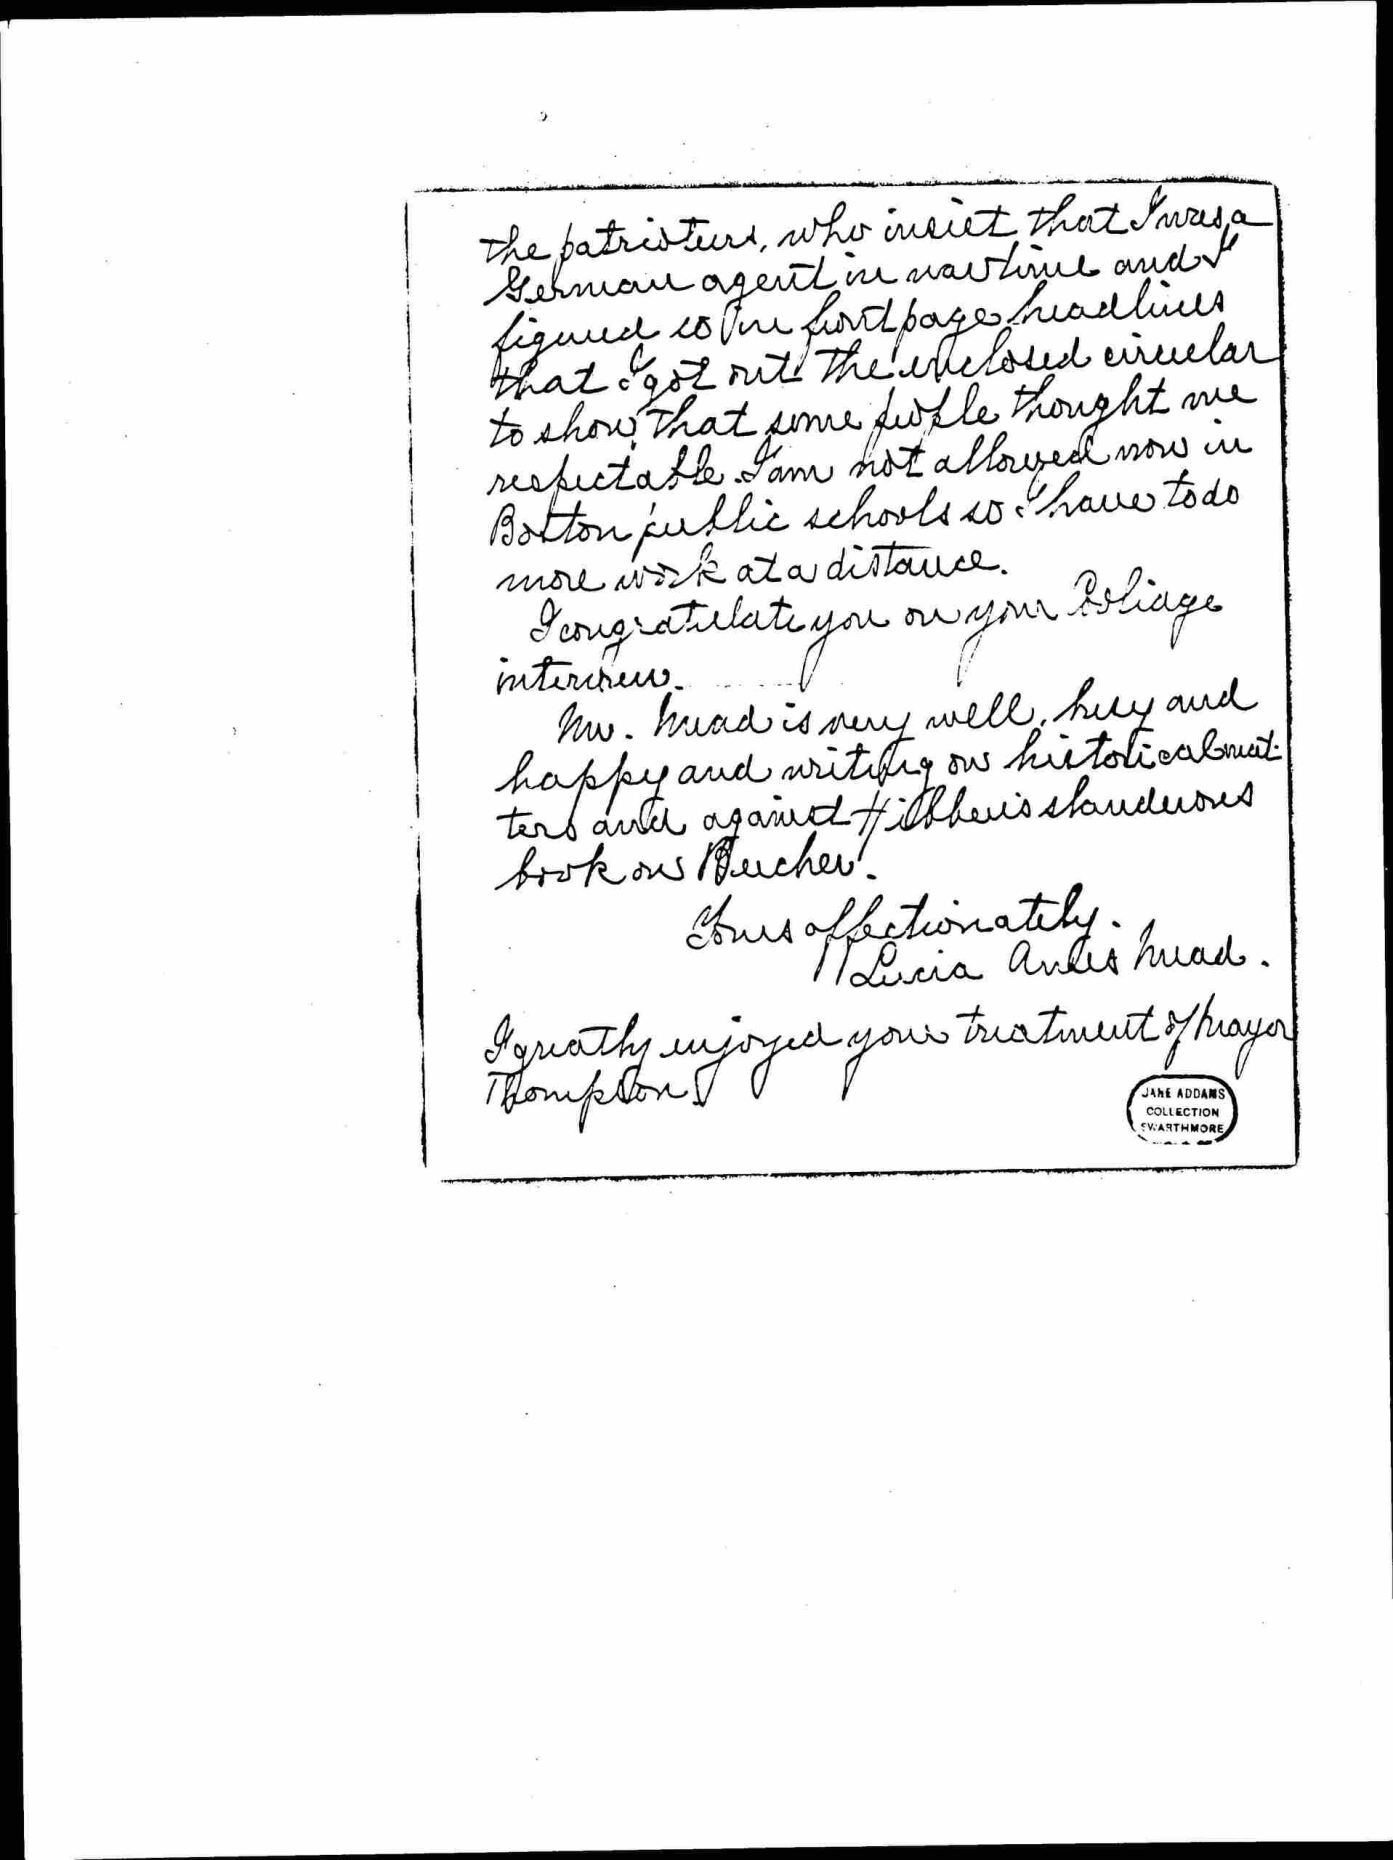 the patrioteers, who insist that I was a
German agent in wartime and I
figured so in front page headlines
that I got out the enclosed circular
to show that some people thought me
respectable. I am not allowed now in
Boston public schools so I have to do
more work at a distance.
I congratulate you on your Coolidge
interview.
Mr. Mead is very well, busy and
happy and writing on historical mat-
ters and against Hibben's slanderous
book on Beecher.
Yours affectionately.
Lucia Ames Mead.
I greatly enjoyed your treatment of Mayor
Thompson.
JANE ADDAMS
COLLECTION
SWARTHMORE